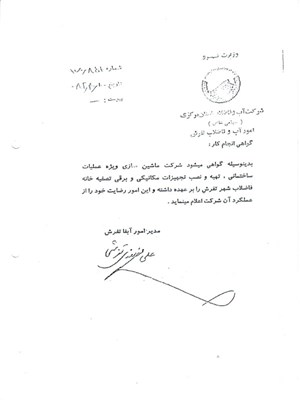 وزارت نیرو
شماره
تاریخ
پیوست
شرکت آب و فاضلاب استان مرکزی
(سهامی خاص)
امور آب و فاضلاب تفرش
گواهی انجام کار :
بدینوسیله گواهی میشود شرکت ماشین سازی ویژه عملیات
ساختمانی ، تهیه و نصب تجهیزات مکانیکی و برقی تصفیه خانه
فاضلاب شهر تفرش را بر عهده داشته و این امور رضایت خود را از
عملکرد آن شرکت اعلام مینماید .
مدیر امور آبفا تفرش
علی